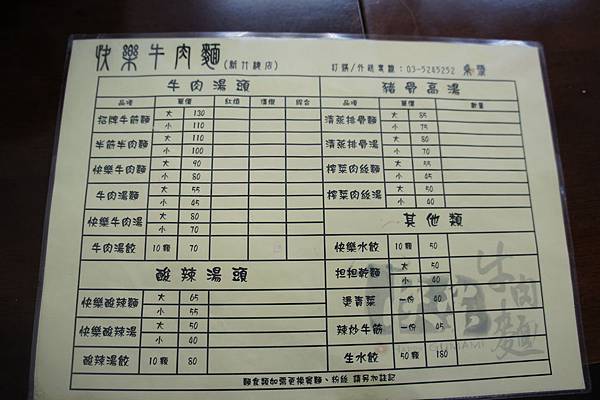 快樂牛肉麵(新竹總店) 訂購/外送專線：03-5245252 桌號
牛肉湯頭
品項 單價 紅燒 清燉 綜合
招牌牛筋麵 大 130
小 110
半筋半肉麵 大 110
小 100
快樂牛肉麵 大 90
小 80
牛肉湯麵 大 55
小 45
快樂牛肉湯 大 80
小 70
牛肉湯餃 10顆 70
酸辣湯頭
快樂酸辣麵 大 65
小 55
快樂酸辣湯 大 50
小 40
酸辣湯餃 10顆 80
豬骨高湯
品項 單價 數量
清蒸排骨麵 大 85
小 75
清蒸排骨湯 大 80
小 70
榨菜肉絲麵 大 55
小 45
榨菜肉絲湯 大 50
小 40
其他類
快樂水餃 10顆 50
担担乾麵 大 50
小 40
燙青菜 一份 40
辣炒牛筋 一份 45
生水餃 50顆 180
牛肉麵
麵食類如需更換寬麵、粉絲 請另加註記